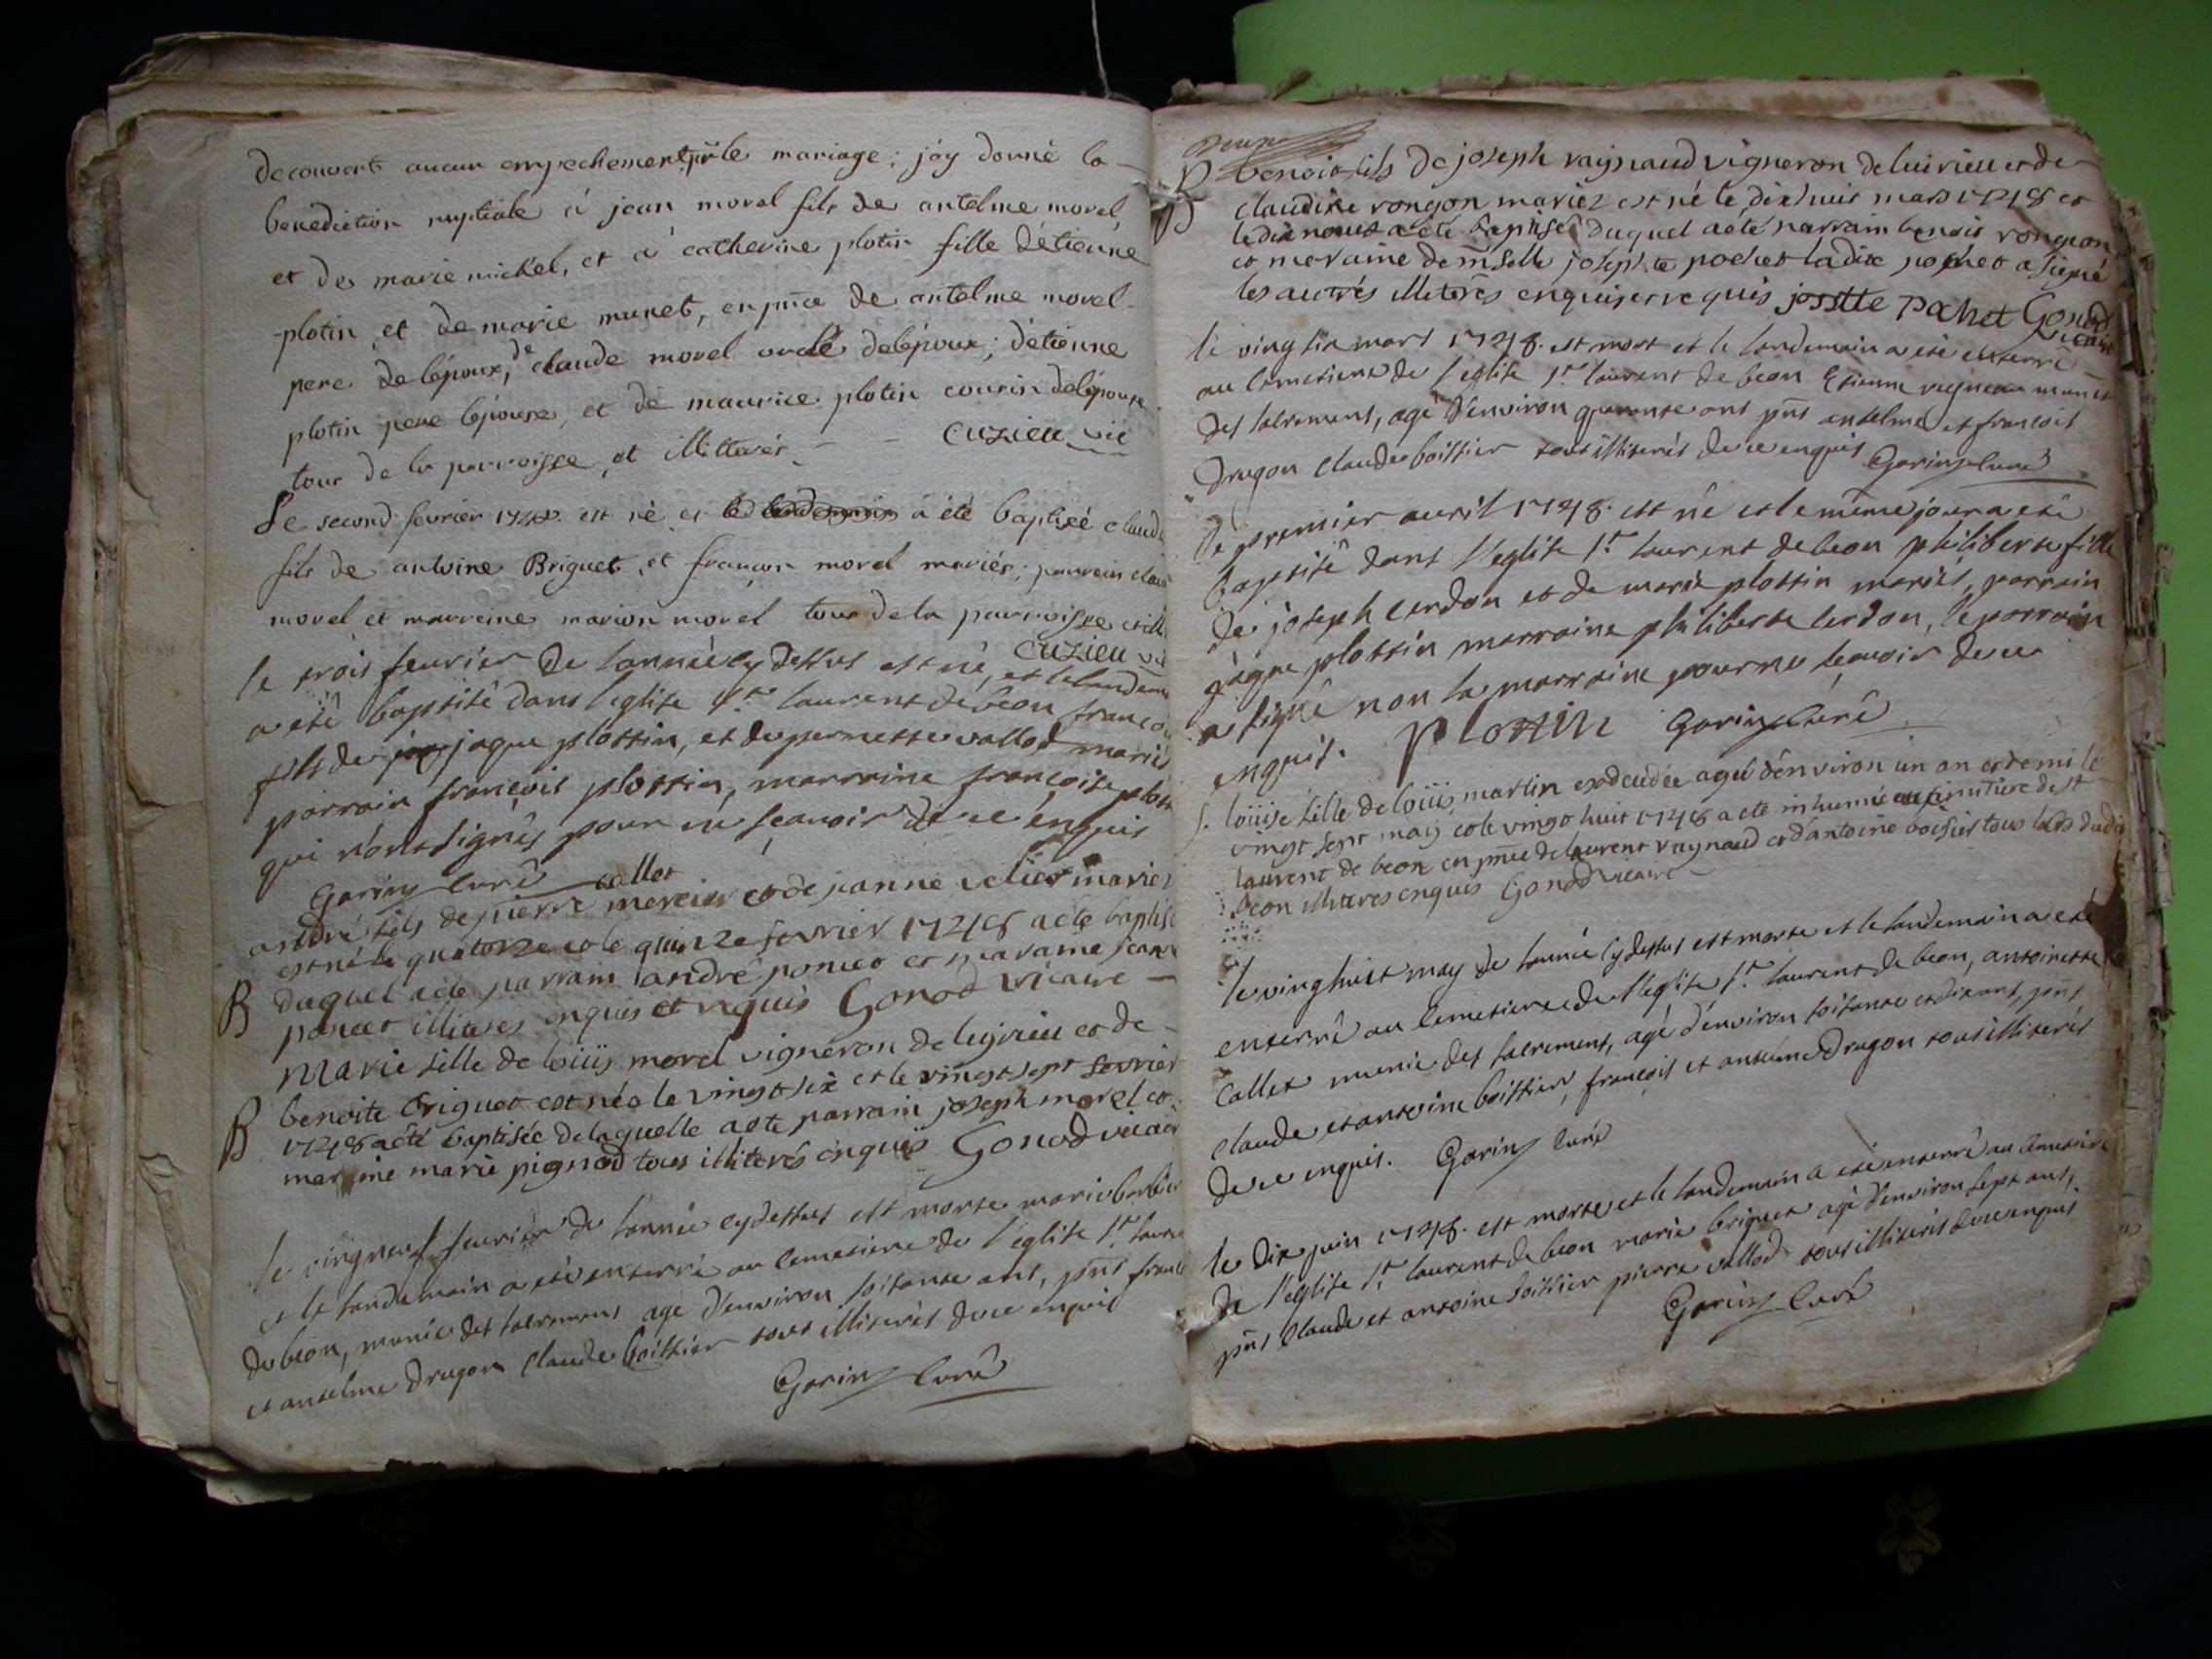 decouvert aucun empechement pr le mariage; j'ay donné la
benediction nuptiale à jean morel fils de antelme morel
et de marie michel, et à catherine plotin fille d'étienne
plotin, et de marie munet, en pnce de antelme morel
pere de l'époux, de claude morel oncle de l'époux; d'étienne
plotin pere l'épouse, et de maurice plotin cousin de l'épouse
tous de la parroisse, et illitterés - - Cuzieu vic
Le second fevrier 1748 est né et le lendemain a été baptisé claude
fils de antoine Briguet, et françoise morel mariés; parrein claude
morel et marreine marion morel tous de la parroisse et illit
Cuzieu vic
le trois feurier de l'année cy dessus est né, et le landemain
a eté baptisé dans l'eglise st laurent de beon françois
fils de jaq jaque plottin, et de pernette vallod mariés
parrain françois plottin, marraine françoise plott
qui n'ont signés pour ne sçavoir de ce enquis
Gorin curé
callet
andré fils de pierre mercier et de janne mariez
est né le quatorze et le quinze fevrier 1748 a eté baptisé
B duquel a eté parrain andré poncet et maraine jeanne
poncet illiteres enquis et requis Gonod vicaire
Marie fille de loüis morel vignéron de luyrieu et de
B benoite briguet est née le vingt six et le vingt sept fevrier
1748 a été baptisée de laquelle a ete parrain joseph morel et
marraine marie pignod tous illiterés enquis Gonod vicaire
le vingneuf feurier de l'année cy dessus est morte marie barbier
et le landemain a eté enterré au cemetiere de l'eglise st laurent
de beon, munie des sacremens agé d'environ soisante ans, pñs françois
et anselme dragon claude boissier tous illiterés de ce enquis
Gorin curé
B benoit fils de joseph raynaud vigneron de luirieu et de
claudine rongon mariez est né le dix huit mars 1748 et
le dix neuf a eté baptisé duquel a eté parrain benoit rongeon
et maraine demselle josephte pochet ladite pochet a signé
les autres illiterés enquis et requis jostte pachet Gonod
vicaire
le vingsix mars 1748. est mort et le landemain a eté enterré
au cemetiere de l'eglise st laurent de beon Etienne regneau muni
des sacremens, agé d'environ quarante ans pñs anselme et françois
dragon claude boissier tous illiterés de ce enquis Gorin curé
le premier auril 1748. est né et le même jour a eté
baptisé dans l'eglise st laurent de beon philiberte fille
de joseph cerdon et de marie plottin mariés, parrain
jaque plottin marraine philiberte cerdon, le parrain
a signé non la marraine pour ne sçavoir de ce
enquis. plottin Gorin curé
S. loüise fille de loüis martin decedée agée d'environ un an et demi le
vingt sept may et le vingt huit 1748 a eté inhumée au cimitiere de st
laurent de beon en pnce de laurent raynaud et d'antoine boissier tous deux dudit
beon illiteres enquis Gonod vicaire
le vinghuict may de l'année cy dessus est morte et le landemain a eté
enterré au cemetiere de l'eglise st laurent de beon, antoinette
callet munie des sacremens, agé d'environ soisante et dix ans, pñs
claude et antoine boissier, françois et antelme dragon tous illiterés
de ce enquis. Gorin curé
le dix juin 1748. est morte et le landemain a eté enterré au cemetiere
de l'eglise st laurent de beon marie briguet agé d'environ sept ans,
pñs claude et antoine boissier pierre vallod tous illiterés de ce enquis
Gorin curé